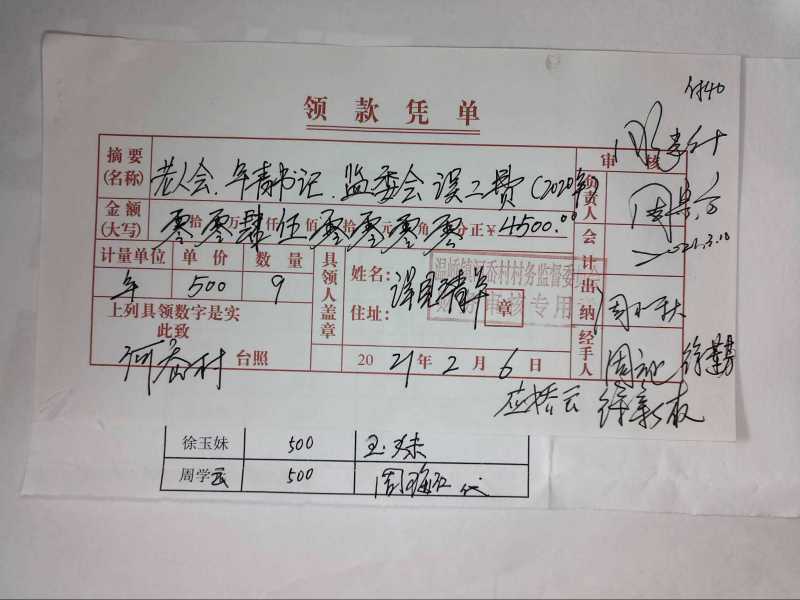 付40
领款凭单
摘要(名称) 老人会.年青书记.监委会误工费(2020年) 审核
金额(大写) 零拾零万肆仟伍佰零拾零元零角零分正¥4500.00 负责人
计量单位 单价 数量 具领人盖章 姓名: 详见清单 会计
年 500 9 住址: 出纳
温峤镇河岙村村务监督委员会
财务审核专用章
2021.3.10
上列具领数字是实
此致
河岙村 台照 2021年2月6日 经手人
应桥云 徐新友
徐玉妹 500 玉妹
周学云 500 代